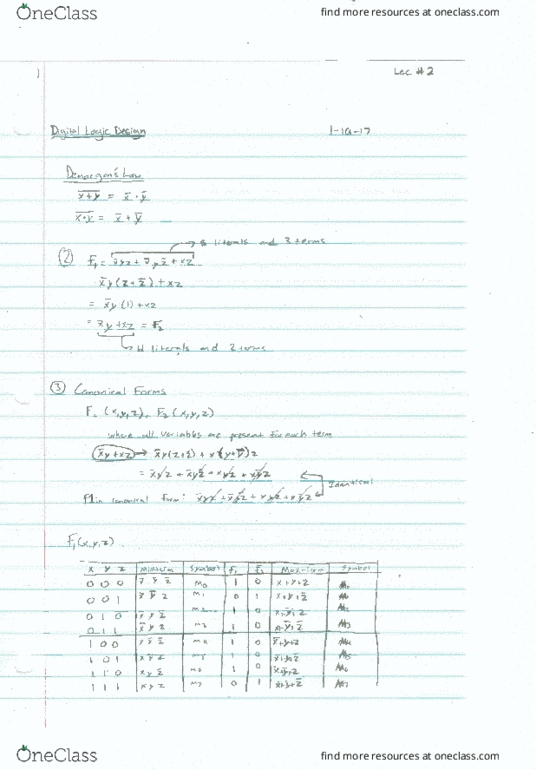 OneClass
find more resources at oneclass.com
Lec #2
Digital Logic Design 1-19-17
Demorgan's Law
x̅+̅y̅ = x̅ · y̅
x̅·̅y̅ = x̅ + y̅
8 literals and 3 terms
(2) F₁ = x̅yz + x̅yz̅ + xz
x̅y(z+z̅)+xz
= x̅y(1)+xz
= x̅y+xz = F₂
4 literals and 2 terms
(3) Canonical Forms
F₁(x,y,z), F₂(x,y,z)
where all variables are present for each term
x̅y+xz → x̅y(z+z̅)+x(y+y̅)z
= x̅yz + x̅yz̅ + xyz + xy̅z
Identical
F1 in canonical form: x̅yz + x̅yz̅ + xyz + xy̅z
F₁(x,y,z)
x y z Minterms Symbol f₁ f̅₁ Maxterm Symbol
0 0 0 x̅ y̅ z̅ m₀ 1 0 x+y+z M₀
0 0 1 x̅ y̅ z m₁ 0 1 x+y+z̅ M₁
0 1 0 x̅ y z̅ m₂ 1 0 x+y̅+z M₂
0 1 1 x̅ y z m₃ 1 0 x+y̅+z̅ M₃
1 0 0 x y̅ z̅ m₄ 1 0 x̅+y+z M₄
1 0 1 x y̅ z m₅ 1 0 x̅+y+z̅ M₅
1 1 0 x y z̅ m₆ 1 0 x̅+y̅+z M₆
1 1 1 x y z m₇ 0 1 x̅+y̅+z̅ M₇
OneClass
find more resources at oneclass.com